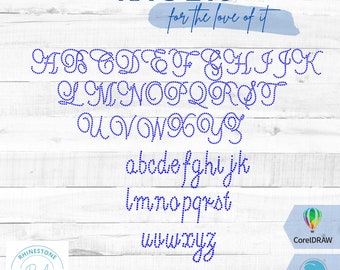 for the love of it
ABCDEFGHIJK
LMNOPQRST
UVWXYZ
abcdefghijk
lmnopqrst
uvwxyz
CorelDRAW
RHINESTONE